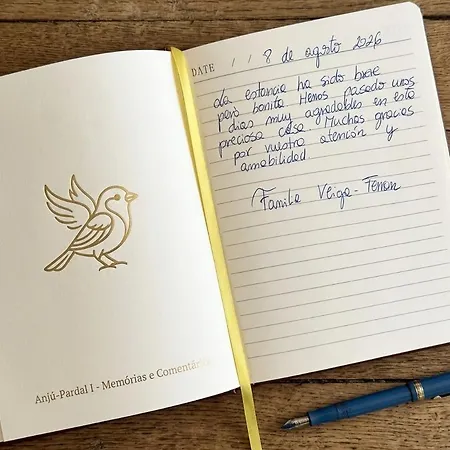 Anjú-Pardal I - Memórias e Comentários
DATE / / 8 de agosto 2026
La estancia ha sido breve
pero bonita Hemos pasado unos
días muy agradables en esta
preciosa casa Muchas gracias
por vuestra atención y
amabilidad.
Familia Veiga - Ferron